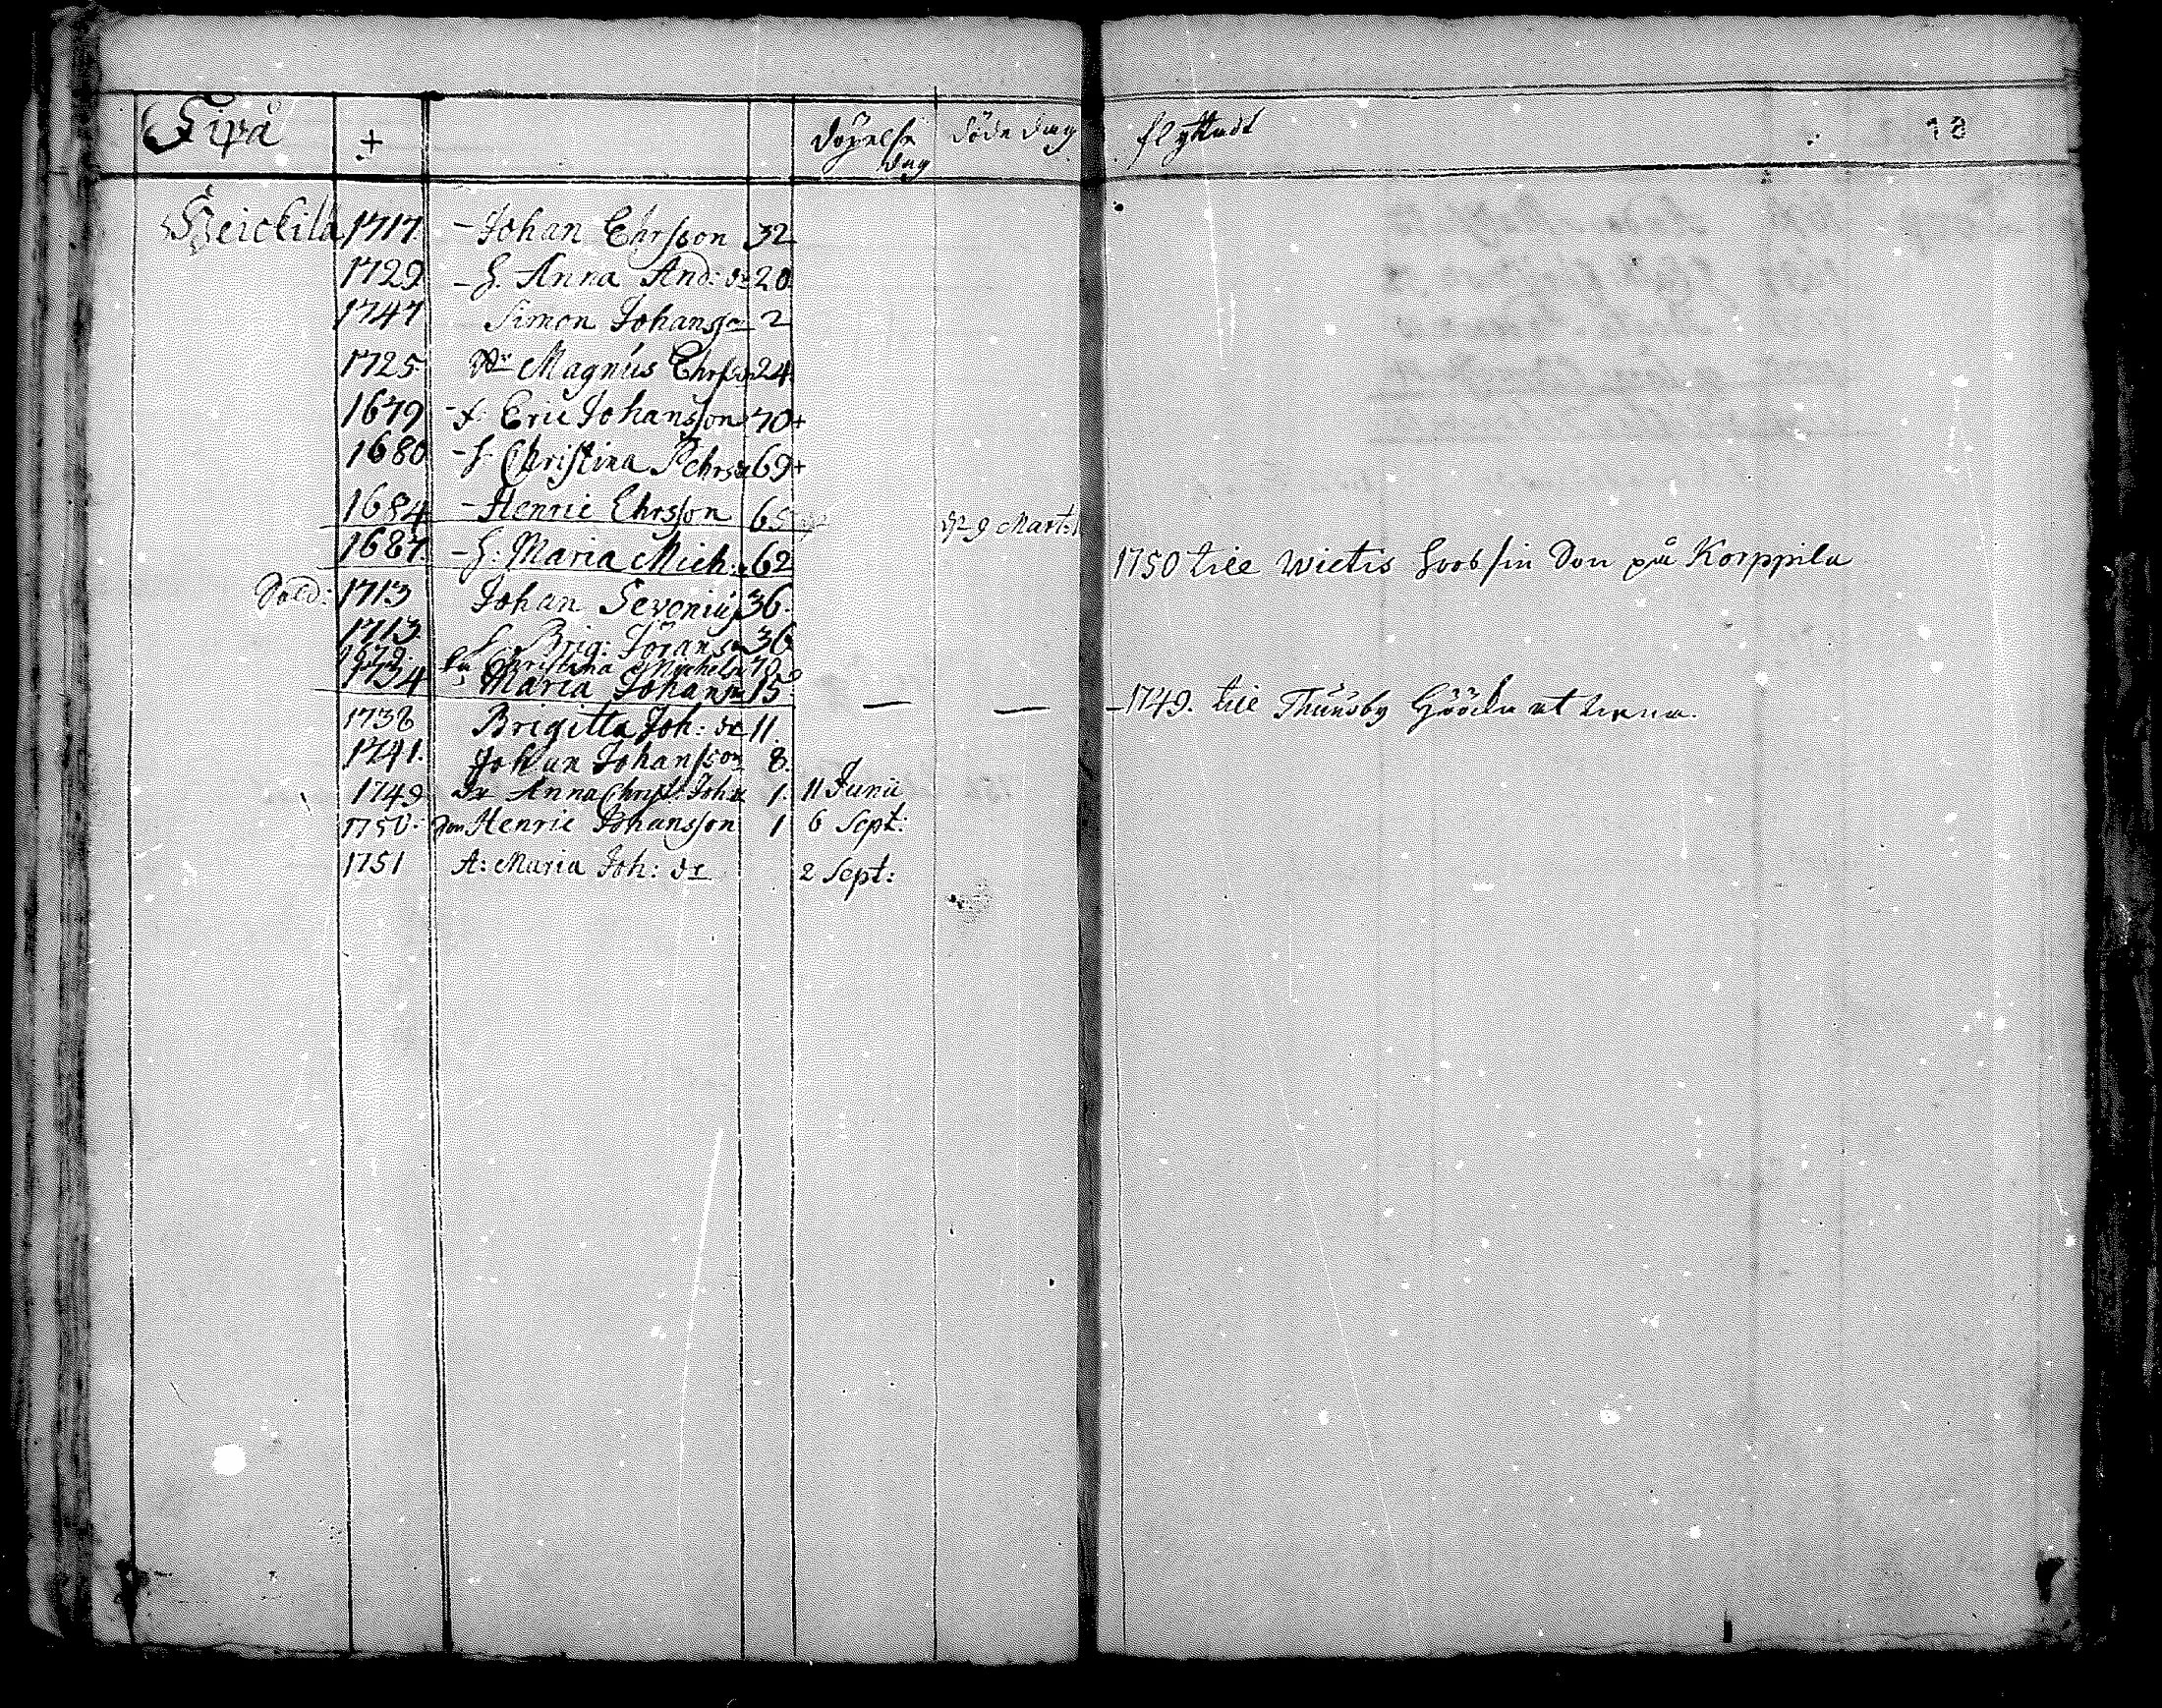 Sipå + döpelse dag döde dag flyttadt
Heickilä 1717. - Johan Ehrsson 32
1729 - H. Anna And: dr 20
1747 Simon Johansson 2
1725. Dr Magnus Ehrsson 24
1679 - f. Eric Johansson 70 +
1680 - h Christina Pehrs dr 69 +
1684 - Henric Ehrsson 65 9 Mart:
1687. - H: Maria Mich: 62 1750 till Wictis hoos sin Son på Korppila
Sold: 1713 Johan Sevonius 36.
1713 h. Brig: Jörans dr 36
1679. Christina Michels 70
1734 Maria Johans dr 15 — — - 1749. till Thusby
1738 Brigitta Joh: dr 11.
1741. Johan Johansson 8.
1749 dr Anna Christ: Joh: 1. 11 Junii
1750. Son Henric Johansson 1 6 Sept:
1751 A: Maria Joh: dr 2 Sept: